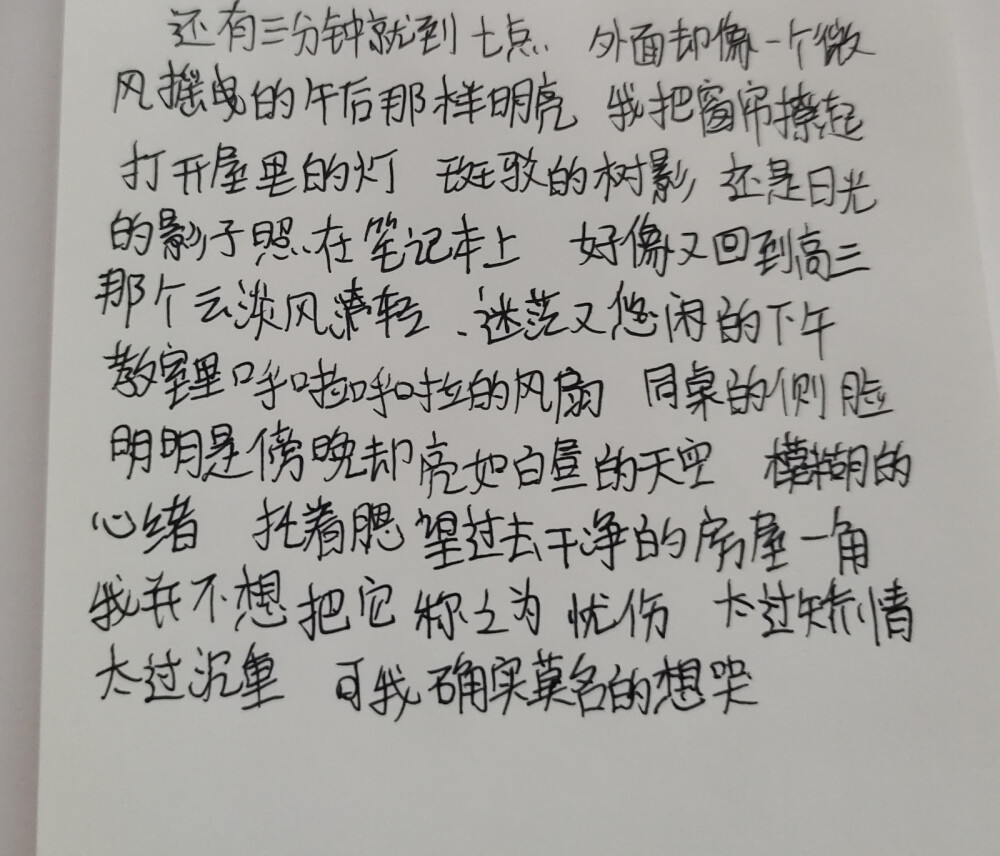 还有三分钟就到七点 外面却像一个微
风摇曳的午后那样明亮 我把窗帘撩起
打开屋里的灯 斑驳的树影 还是日光
的影子照在笔记本上 好像又回到高三
那个云淡风清轻、迷茫又悠闲的下午
教室里呼啦呼啦的风扇 同桌的侧脸
明明是傍晚却亮如白昼的天空 模糊的
心绪 托着腮望过去干净的房屋一角
我并不想把它称之为忧伤 太过矫情
太过沉重 可我确实莫名的想哭